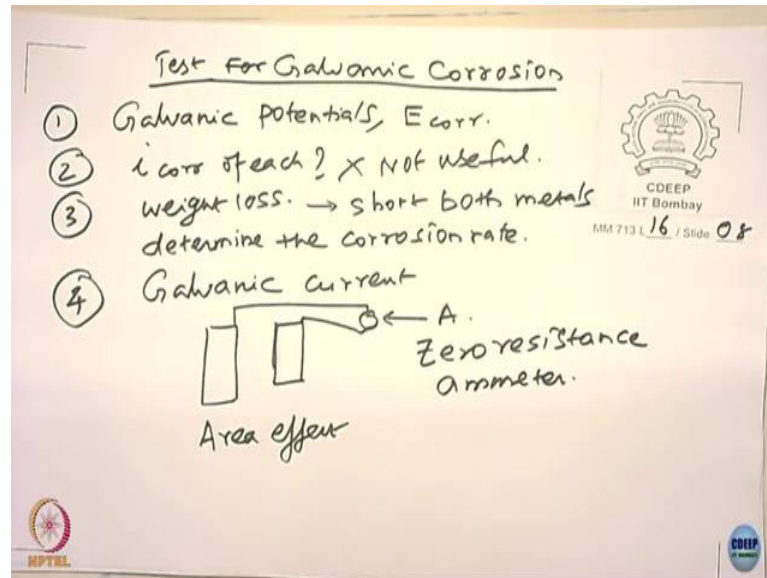 Test For Galvanic Corrosion
① Galvanic Potentials, Ecorr.
② i corr of each? X Not useful.
③ weight loss. → short both metals
determine the corrosion rate.
④ Galvanic current
← A.
Zero resistance
ammeter.
Area effect
CDEEP
IIT Bombay
MM 713 L 16 / Slide 08
NPTEL
CDEEP
IIT BOMBAY